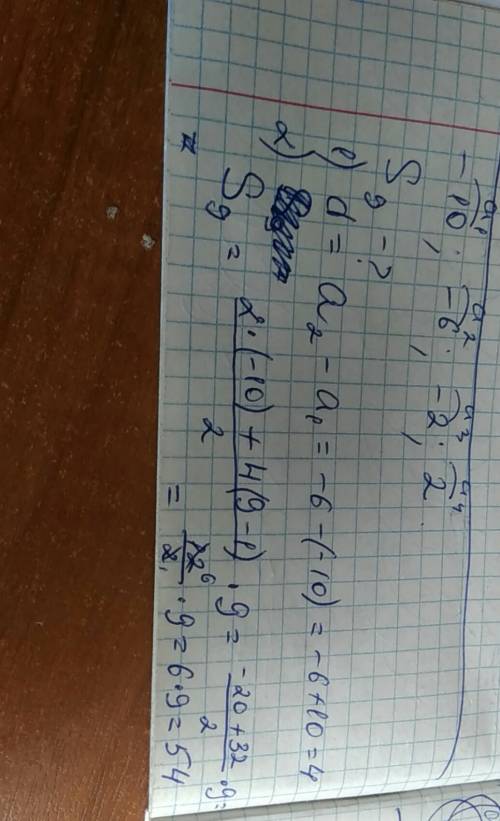 a₁ a₂ a₃ a₄
-10; -6; -2; 2
S₉ - ?
1) d = a₂ - a₁ = -6 - (-10) = -6 + 10 = 4
2)
S₉ = \frac{2·(-10) + 4(9-1)}{2} · 9 = \frac{-20 + 32}{2} · 9 =
= \frac{12}{2} · 9 = 6·9 = 54